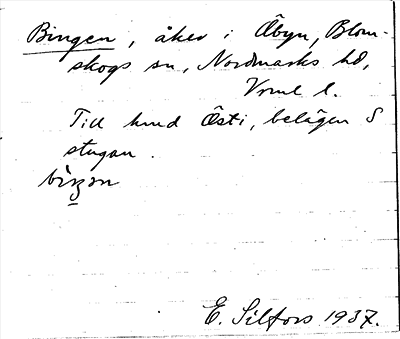 Bingen, åker i Åbyn, Blom-
skogs sn, Nordmarks hd,
Vrml l.
Till hmd Östi, belägen S
stugan.
E. Silfors 1937.